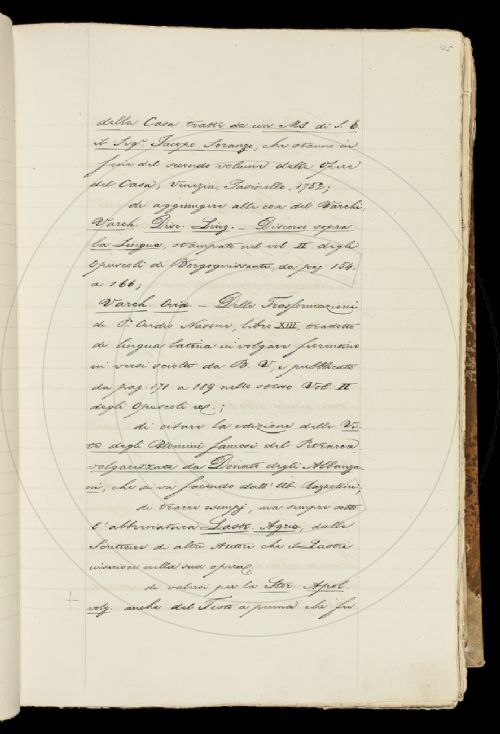 125
della Casa tratti da un Ms. di S. E.
il Sigr. Jacopo Soranzo, che stanno in
fine del secondo volume delle Opere
del Casa, Venezia, Pasinello, 1752;
di aggiungere alle cose del Varchi:
Varch. Disc. Ling. — Discorso sopra
la Lingua, stampato nel vol. II degli
Opuscoli di Borgognissanti, da pag. 154
a 166;
Varch. Ovid. — Delle Trasformazioni
di P. Ovidio Nasone, libro XIII, tradotto
di lingua latina in volgare fiorentino
in versi sciolti da B. V., e pubblicato
da pag. 171 a 189 nello stesso Vol. II
degli Opuscoli ec.;
di citare la edizione delle Vi-
te degli Uomini famosi del Petrarca
volgarizzate da Donato degli Albanza-
ni, che si va facendo dall'Ab. Razzolini;
di trarre esempj, ma sempre sotto
l'abbreviatura Lastr. Agric. dalle
Scritture di altri Autori che il Lastri
inserisce nella sua opera;
di valersi per la Stor. Apol.
volg. anche del Testo a penna che fu